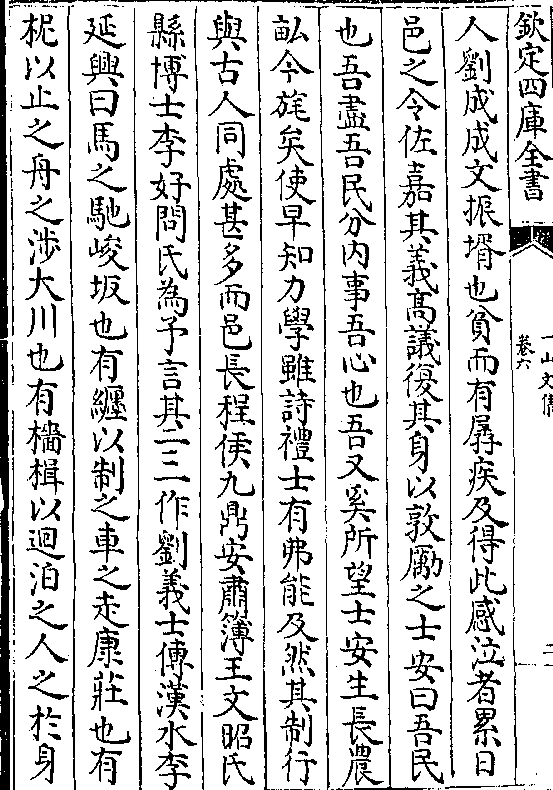 欽定四庫全書
卷六
人劉成成文振壻也貧而有羸疾及得此感泣者累日
邑之令佐嘉其義高議復其身以敦勵之士安曰吾民
也吾盡吾民分内事吾心也吾又奚所望士安生長農
畝今旄矣使早知力學雖詩禮士有弗能及然其制行
與古人同處甚多而邑長程侯九鼎安肅簿王文昭氏
縣博士李好問氏為予言其二三作劉義士傳漢水李
延興曰馬之馳峻坂也有纒以制之車之走康莊也有
柅以止之舟之涉大川也有檣楫以迴泊之人之於身